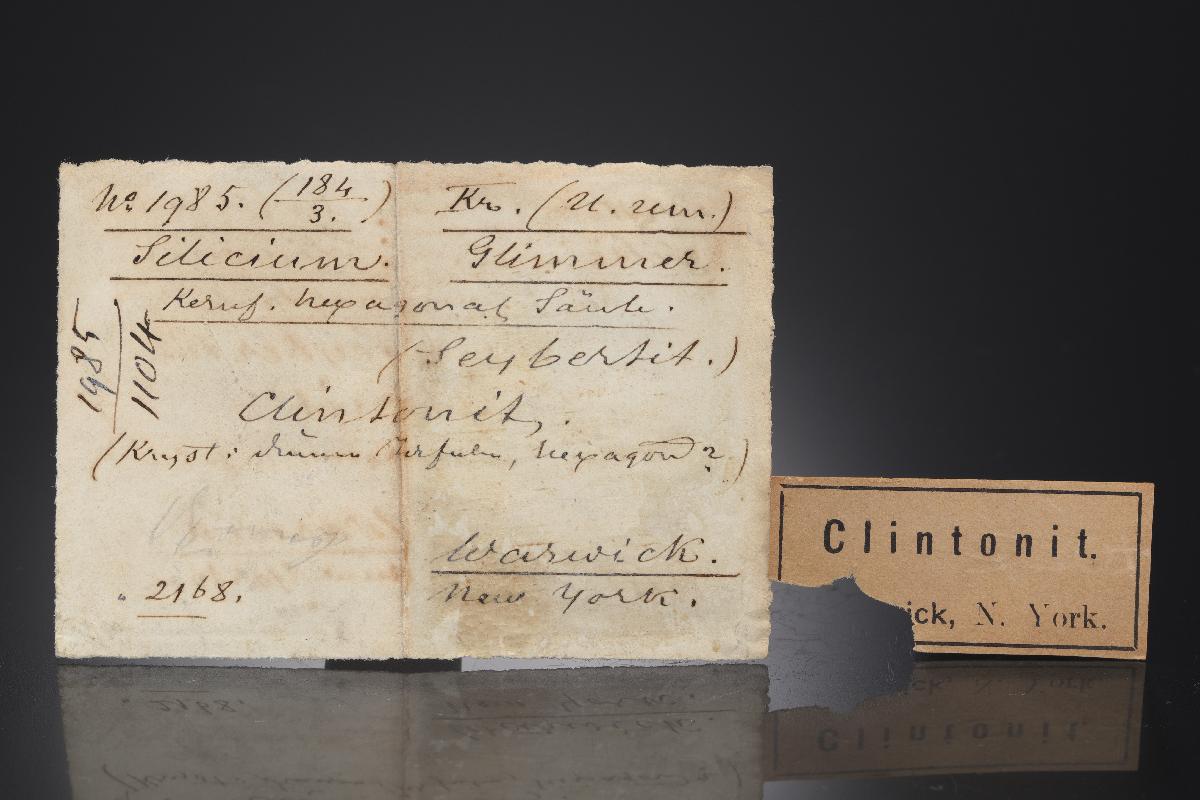 No 1985. (184/3.) Kr. (U. rum.)
Silicium. Glimmer.
Kernf. hexagonal Säule.
1985
1104
(Seybertit.)
Clintonit,.
(Kryst: dünne Tafeln, hexagon?)
Warwick.
" 2168. New York.
Clintonit.
ick, N. York.